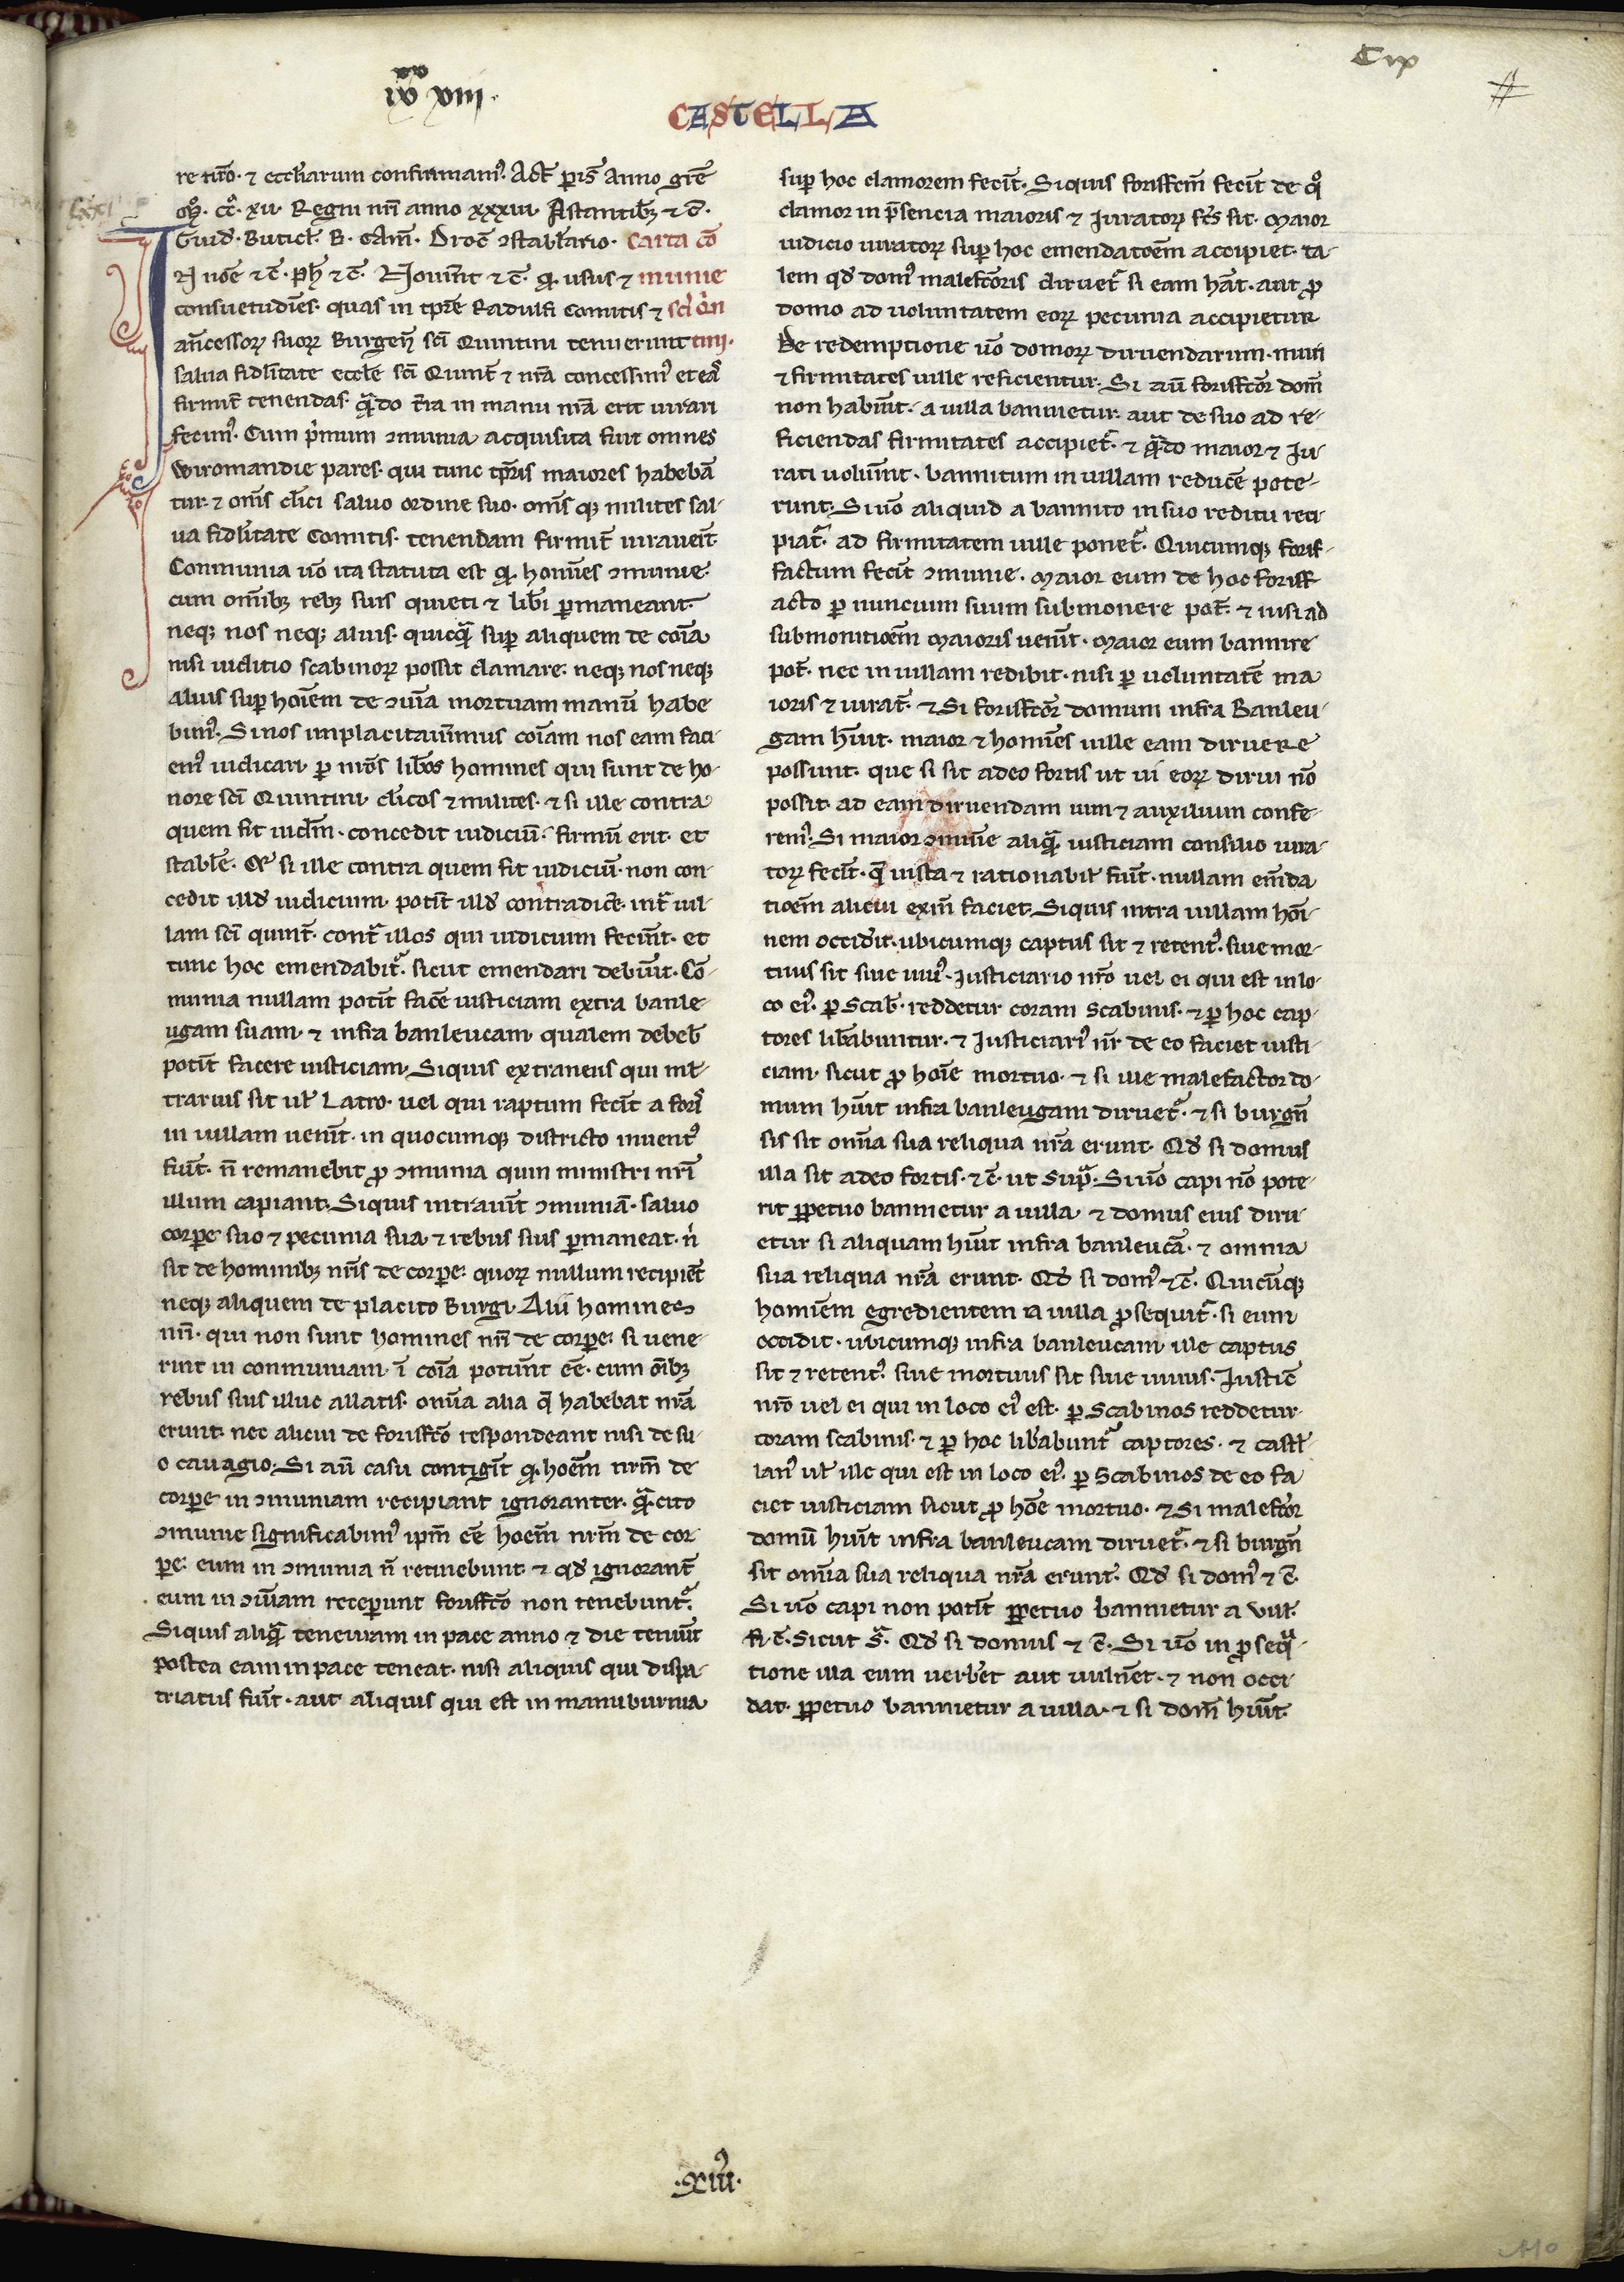 Cix
#
ixa xaviii.
CASTELLA
re nr̄o. ⁊ eccl̄iarum confirmamꝰ. Act̄ p̄is̄ Anno gr̄e
cͦ. ccͦ. xii. Regni nr̄i anno xxxiii. Astantibꝫ ⁊ c̄.
Guid̄. Buticl̄. B. cam̄. Droc̄ ꝯstabl̄ario. Carta cō
N noīe ⁊ c̄. ph̄ ⁊ c̄. Nouīnt ⁊ c̄. qͥ. usus ⁊ munie
consuetudīes. quas in tp̄re Radulfi Comitis ⁊ sc̄i Qͥn
an̄cessoꝝ suoꝝ Burgen̄ sc̄i Quintini tenuerunt tini.
salua fidl̄itate eccl̄e sc̄i Quint̄ ⁊ nr̄a concessimꝰ et eaꝰ
firmit̄ tenendas. qᷓdo t̄ra in manu nr̄a erit iurari
fecimꝰ. Cum p̄mum ꝯmunia acquisita fuit omnes
Wiromandie pares. qui tunc tp̄ris maiores habebā
tur. ⁊ om̄s cl̄ici saluo ordine suo. om̄s qꝫ milites sal-
ua fidl̄itate Comitis. tenendam firmit̄ iurauer̄t.
Communia uō ita statuta est qͥ. homīes ꝯmunie.
cum om̄ibꝫ rebꝫ suis quieti ⁊ lib̄i p̲maneant.
neqꝫ nos neqꝫ alius. quicqᷓ sup̲ aliquem de cōīa
nisi iuditio scabinoꝝ possit clamare. neqꝫ nos neqꝫ
alius sup̲ hoīem de ꝯīa mortuam manū habe
bimꝰ. Si nos implacitauīmus cōīam nos eam faci-
emꝰ iudicari. p̲ nr̄os lib̄os homines qui sunt de ho-
nore sc̄i Quintini. cl̄icos ⁊ milites. ⁊ si ille contra
quem fit iudm̄. concedit iudiciū. firmū erit. et
stabl̄e. Qͥ si ille contra quem fit iudiciū. non con-
cedit illd̄ iudicium. potit̄ illd̄ contradic̄e. int̄ uil-
lam sc̄i quint̄. cont̄ illos qui iudicium fecīnt. et
tunc hoc emendabit᷑. sicut emendari debūit. Cō-
munia nullam potit̄ fac̄e iusticiam extra banle-
ugam suam. ⁊ infra banleucam. qualem debeb̄
potit̄ facere iusticiam. Siquis extraneus qui mul̄-
trarius sit ul̄ Latro. uel qui raptum fecit̄ a foris
in uillam uenīt. in quocumqꝫ districto inuentꝰ
fūit. n̄ remanebit ꝓ ꝯmunia quin ministri nr̄i
illum capiant. Siquis intrauīt ꝯmuniā. saluo
corp̲e suo ⁊ pecunia sua ⁊ rebus suis p̲maneat. nͥ
sit de hominibꝫ nr̄is de corp̲e. quoꝝ nullum recipiēt
neqꝫ aliquem de placito Burgi. Alii homines
nr̄i. qui non sunt homines nr̄i de corp̲e. si uene-
rint in communiam. ī cōīa potūnt ēē. cum oībꝫ
rebus suis illuc allatis. omīa alia q̄ habebat nr̄a
erunt. nec alicui de forisfc̄o respondeant nisi de su-
o cauagio. Si aū casu contigīt qͥ. hoēm nr̄m de
corp̲e in ꝯmuniam recipiant ignoranter. qᷓcito
ꝯmunie significabimꝰ ip̄m ēē hoēm nr̄m de cor-
p̲e. eum in ꝯmunia n̄ retinebunt. ⁊ qd̄ ignorant̄
eum in ꝯīam recep̲unt forisfc̄o non tenebunt᷑.
Siquis aliqᷓ teneuram in pace anno ⁊ die tenuīt
postea eam in pace teneat. nisi aliquis qui dispa-
triatus fūit. aut aliquis qui est in manuburnia
sup̲ hoc clamorem fecīt. Siquis forisfcm̄ fecīt de qͦ
clamor in p̄sencia maioris ⁊ Iuratoꝝ fc̄s sit. Maior
iudicio iuratoꝝ sup̲ hoc emendatōem accipiet. ta-
lem qd̄ domꝰ malefc̄oris diruet᷑ si eam hāt. aut ꝓ
domo ad uoluntatem eoꝝ pecunia accipietur
De redemptione uō domoꝝ diruendarum. muri
⁊ firmitates uille reficientur. Si aū forisfc̄or dom̄
non habūit. a uilla bannietur. aut de suo ad re-
ficiendas firmitates accipiet᷑. ⁊ qᷓdo maior ⁊ Iu-
rati uolūint. bannitum in uillam reduc̄e pote-
runt. Si uō aliquid a bannito in suo reditu reci-
piat᷑. ad firmitatem uille ponet᷑. Quicumqꝫ foris-
factum fecīt ꝯmunie. Maior eum de hoc forisf
acto p̲ nuncium suum submonere pot̄. ⁊ nisi ad
submonitiōem Maioris uenīt. Maior eum bannire
pot̄. nec in uillam redibit. nisi p̲ uoluntatē ma
ioris ⁊ iurat̄. ⁊ Si forisfc̄or domum infra Banleu-
gam hūit. maior ⁊ homīes uille eam diruere
possunt. que si sit adeo fortis ut ui eoꝝ dirui nō
possit. ad eam diruendam uim ⁊ auxilium confe-
remꝰ. Si maior ꝯmunie aliqᷓ. iusticiam consilio iura-
toꝝ fecīt. q̄ iusta ⁊ rationabil̄ fūit. nullam emīda
tiōem alicui exīn faciet. Siquis intra uillam hoī-
nem occidīt. ubicumqꝫ captus sit ⁊ retentꝰ. siue mor-
tuus sit siue uiuꝰ. Iusticiario nr̄o uel ei qui est in lo-
co eiꝰ. p̲ Scab̄. reddetur coram Scabinis. ⁊ p̲ hoc cap-
tores lib̄abuntur. ⁊ Iusticiariꝰ nr̄ de eo faciet iusti-
ciam. sicut ꝓ hoīe mortuo. ⁊ si ille malefactor do-
mum hūit infra banleugam diruet᷑. ⁊ si burgn̄
sis sit omīa sua reliqua nr̄a erunt. Qd̄ si domus
illa sit adeo fortis. ⁊ c̄. ut supᷓ. Si uō capi nō pote-
rit p̲petuo bannietur a uilla ⁊ domus eius diru-
etur si aliquam hūit infra banleucā. ⁊ omnia
sua reliqua nr̄a erunt. Qd̄ si domꝰ ⁊ c̄. Quicūqꝫ
homīem egredientem a uilla ꝓsequit᷑. si eum
occidit. ubicumqꝫ infra banleucam ille captus
sit ⁊ retentꝰ. siue mortuus sit siue uiuus. Iustic̄
nr̄o uel ei qui in loco eiꝰ est. p̲ Scabinos reddetur
coram scabinis. ⁊ p̲ hoc lib̄abunt᷑ captores. ⁊ castel̄-
lanꝰ ul̄ ille qui est in loco eiꝰ. p̲ Scabinos de eo fa
ciet iusticiam sicut ꝓ hōe mortuo. ⁊ Si malefc̄or
domū hūit infra banleucam diruet᷑. ⁊ si burgn̄
sit omīa sua reliqua nr̄a erunt. Qd̄ si domꝰ ⁊ c̄.
Si uō capi non potīt p̲petuo bannietur a uill̄.
⁊ c̄. Sicut sᷓ. Qd̄ si domus ⁊ c̄. Si uō in ꝓseqᷓ
tione illa eum uerb̄et aut uuln̄et. ⁊ non occi-
dat. p̲petuo bannietur a uilla. ⁊ si dom̄ hūit.
.xiiiꝰ.
110